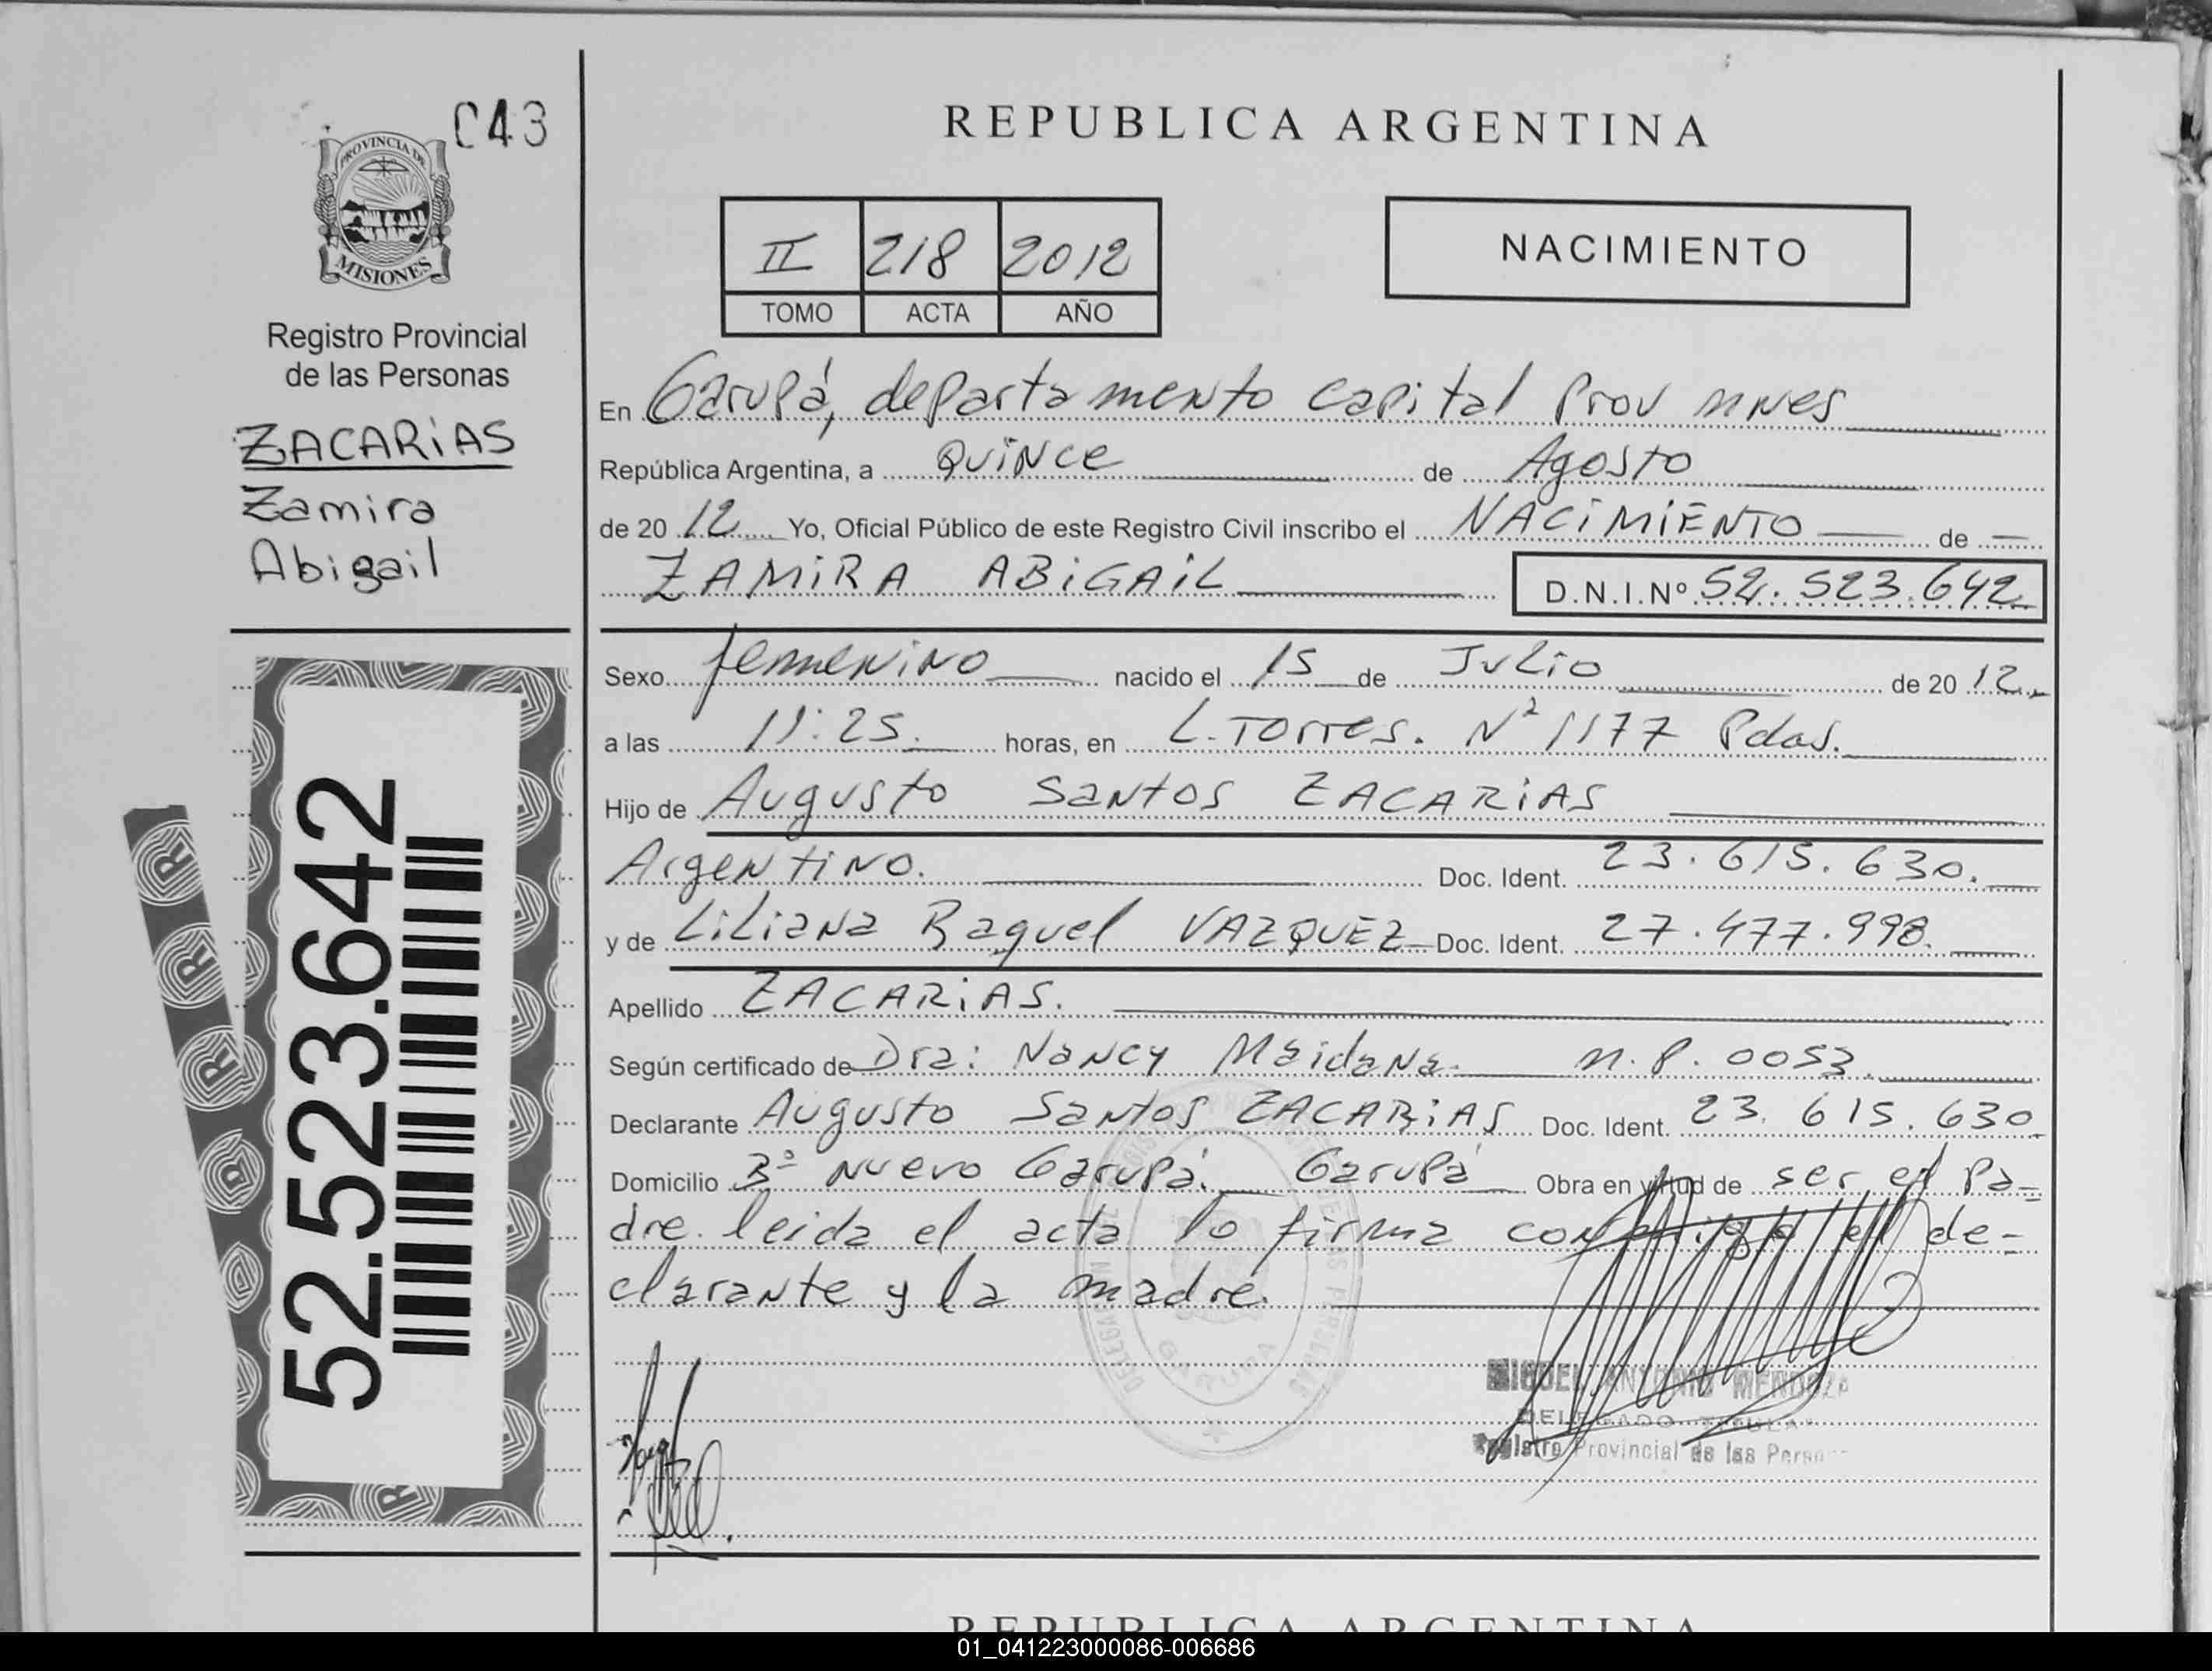 C43
PROVINCIA DE
MISIONES
Registro Provincial
de las Personas
ZACARIAS
Zamira
Abigail
52.523.642
REPUBLICA ARGENTINA
II 218 2012
TOMO ACTA AÑO
NACIMIENTO
En Garupá, departamento capital Prov mnes
República Argentina, a Quince de Agosto
de 20 12 Yo, Oficial Público de este Registro Civil inscribo el NACIMIENTO de
ZAMIRA ABIGAIL D.N.I.Nº 52.523.642
Sexo femenino nacido el 15 de Julio de 20 12
a las 11:25. horas, en L. Torres. Nº 1177 Pdas.
Hijo de Augusto Santos ZACARIAS
Argentino. Doc. Ident. 23.615.630.
y de Liliana Raquel VAZQUEZ Doc. Ident. 27.477.998.
Apellido ZACARIAS.
Según certificado de Dra: Nancy Maidana. m.p. 0053.
Declarante Augusto Santos ZACARIAS Doc. Ident. 23.615.630
Domicilio Bº Nuevo Garupá. Garupá Obra en virtud de ser el Pa-
dre. leida el acta lo firma conmigo el de-
clarante y la madre.
GARUPA
MIGUEL ANTONIO MENDOZA
DELEGADO TITULAR
Registro Provincial de las Person
REPUBLICA ARGENTINA
01_041223000086-006686